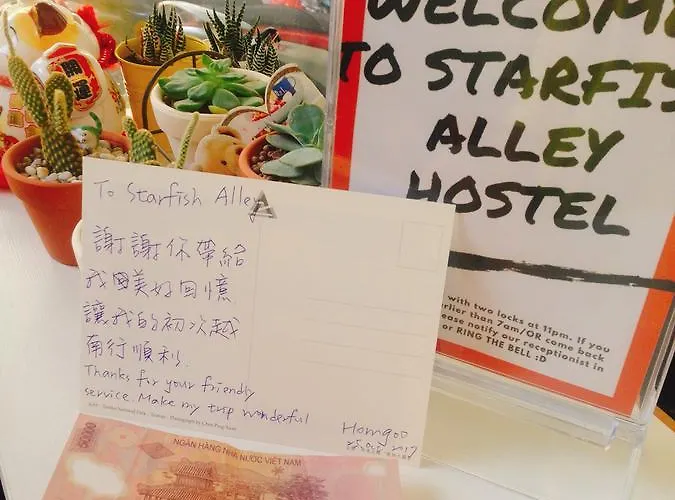 WELCOME
TO STARFIS
ALLEY
HOSTEL
with two locks at 11pm. If you
earlier than 7am/OR come back
please notify our receptionist in
or RING THE BELL :D
To Starfish Alley
謝謝你帶給
我國美好回憶
讓我的初次越
南行順利.
Thanks for your friendly
service. Make my trip wonderful
Homgoo
2017
50000
NGÂN HÀNG NHÀ NƯỚC VIỆT NAM